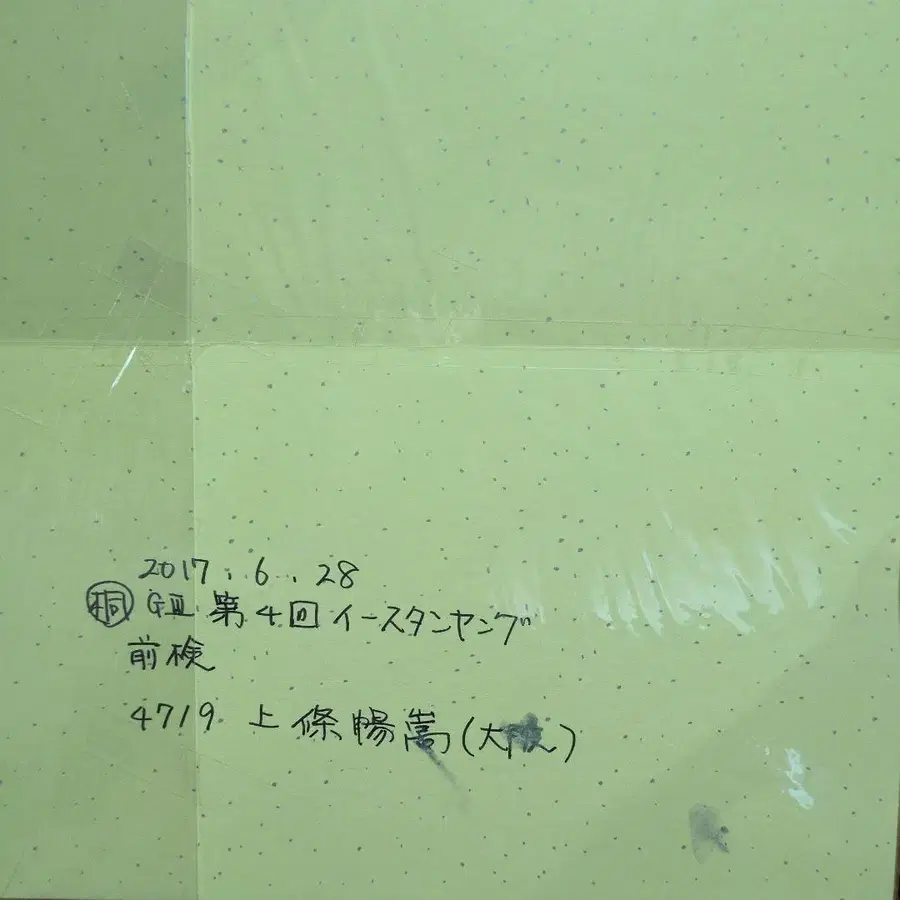 2017.6.28
㊥桐 GⅢ 第4回イースタンヤング
前検
4719 上條暢嵩(大阪)